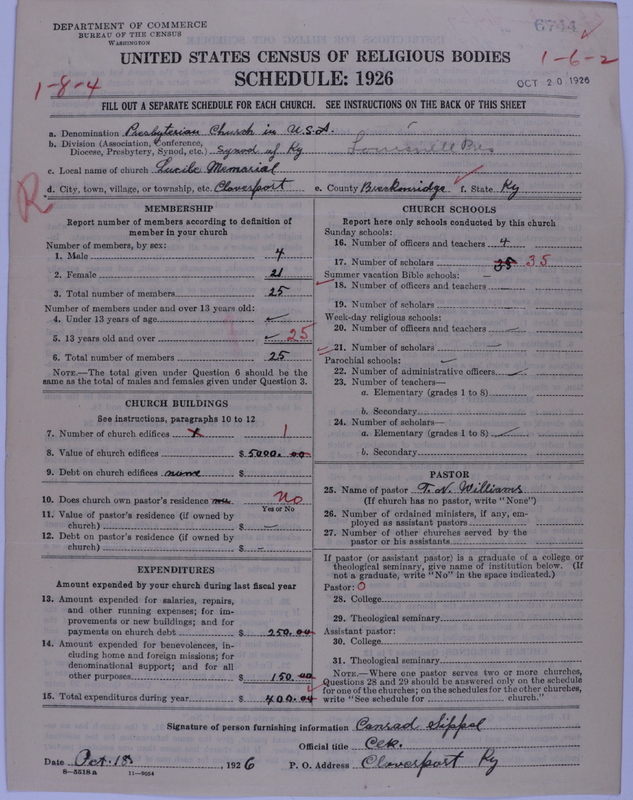 DEPARTMENT OF COMMERCE
BUREAU OF THE CENSUS
WASHINGTON
6744
UNITED STATES CENSUS OF RELIGIOUS BODIES
1-6-2
SCHEDULE: 1926
OCT 20 1926
1-8-4
FILL OUT A SEPARATE SCHEDULE FOR EACH CHURCH. SEE INSTRUCTIONS ON THE BACK OF THIS SHEET
a. Denomination Presbyterian Church in U.S.A.
b. Division (Association, Conference, Diocese, Presbytery, Synod, etc.) Synod of Ky Louisville Pres
c. Local name of church Lucile Memorial
d. City, town, village, or township, etc. Cloverport e. County Breckenridge f. State Ky
R
MEMBERSHIP
Report number of members according to definition of
member in your church
Number of members, by sex:
1. Male 4
2. Female 21
3. Total number of members 25
Number of members under and over 13 years old:
4. Under 13 years of age
5. 13 years old and over 25
6. Total number of members 25
NOTE.—The total given under Question 6 should be the
same as the total of males and females given under Question 3.
CHURCH BUILDINGS
See instructions, paragraphs 10 to 12
7. Number of church edifices 1
8. Value of church edifices $ 5000.00
9. Debt on church edifices none
10. Does church own pastor's residence No
Yes or No
11. Value of pastor's residence (if owned by
church) $
12. Debt on pastor's residence (if owned by
church) $
EXPENDITURES
Amount expended by your church during last fiscal year
13. Amount expended for salaries, repairs,
and other running expenses; for im-
provements or new buildings; and for
payments on church debt $ 250.00
14. Amount expended for benevolences, in-
cluding home and foreign missions; for
denominational support; and for all
other purposes $ 150.00
15. Total expenditures during year $ 400.00
CHURCH SCHOOLS
Report here only schools conducted by this church
Sunday schools:
16. Number of officers and teachers 4
17. Number of scholars 35 35
Summer vacation Bible schools:
18. Number of officers and teachers
19. Number of scholars
Week-day religious schools:
20. Number of officers and teachers
21. Number of scholars
Parochial schools:
22. Number of administrative officers
23. Number of teachers—
a. Elementary (grades 1 to 8)
b. Secondary
24. Number of scholars—
a. Elementary (grades 1 to 8)
b. Secondary
PASTOR
25. Name of pastor T. N. Williams
(If church has no pastor, write "None")
26. Number of ordained ministers, if any, em-
ployed as assistant pastors
27. Number of other churches served by the
pastor or his assistants
If pastor (or assistant pastor) is a graduate of a college or
theological seminary, give name of institution below. (If
not a graduate, write "No" in the space indicated.)
Pastor: O
28. College
29. Theological seminary
Assistant pastor:
30. College
31. Theological seminary
NOTE.—Where one pastor serves two or more churches,
Questions 28 and 29 should be answered only on the schedule
for one of the churches; on the schedules for the other churches,
write "See schedule for church."
Signature of person furnishing information Conrad Sippel
Official title Clk.
Date Oct. 18, 1926 P. O. Address Cloverport Ky
8-5518a 11-9054